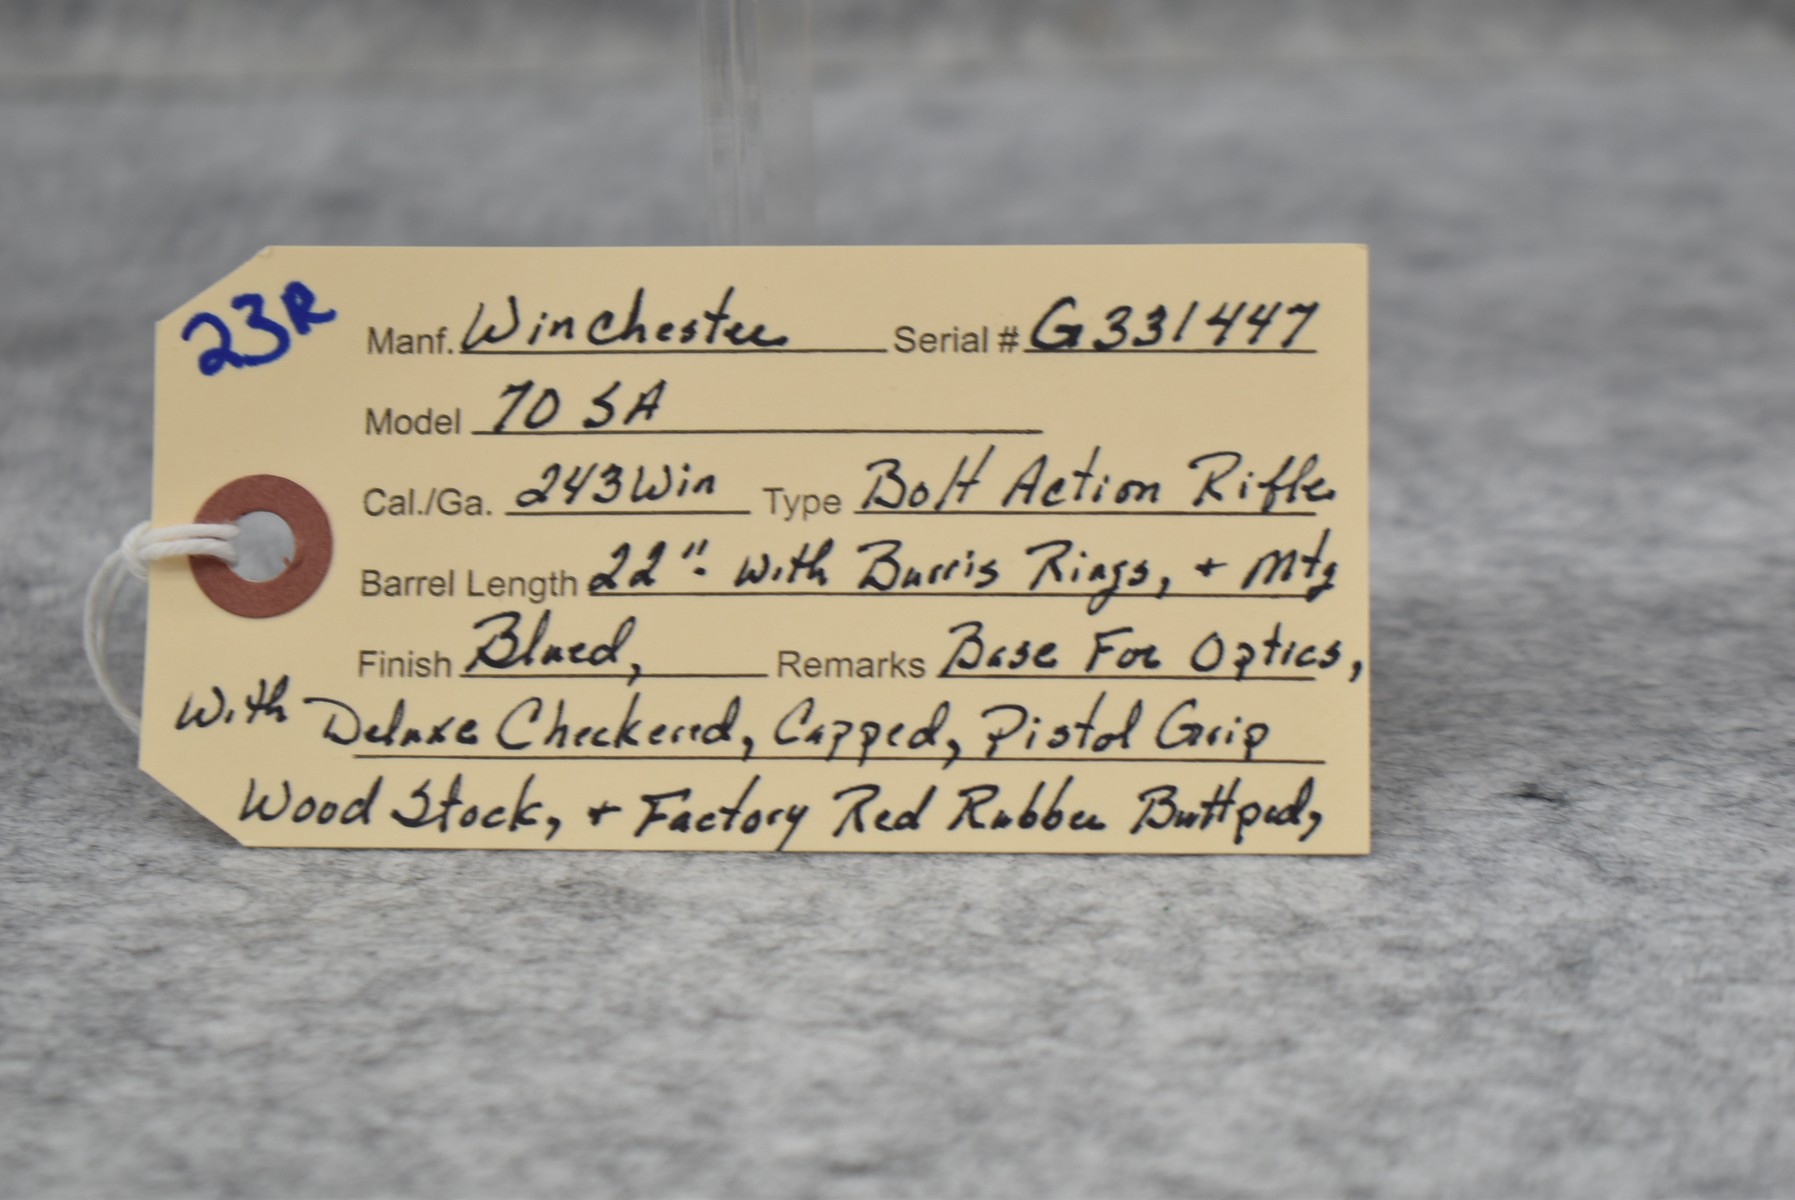 23R
Manf. Winchester Serial # G331447
Model 70 SA
Cal./Ga. 243 Win Type Bolt Action Rifle
Barrel Length 22". with Burris Rings, + Mtg
Finish Blued, Remarks Base For Optics,
With Deluxe Checkered, Capped, Pistol Grip
Wood Stock, + Factory Red Rubber Buttpad,